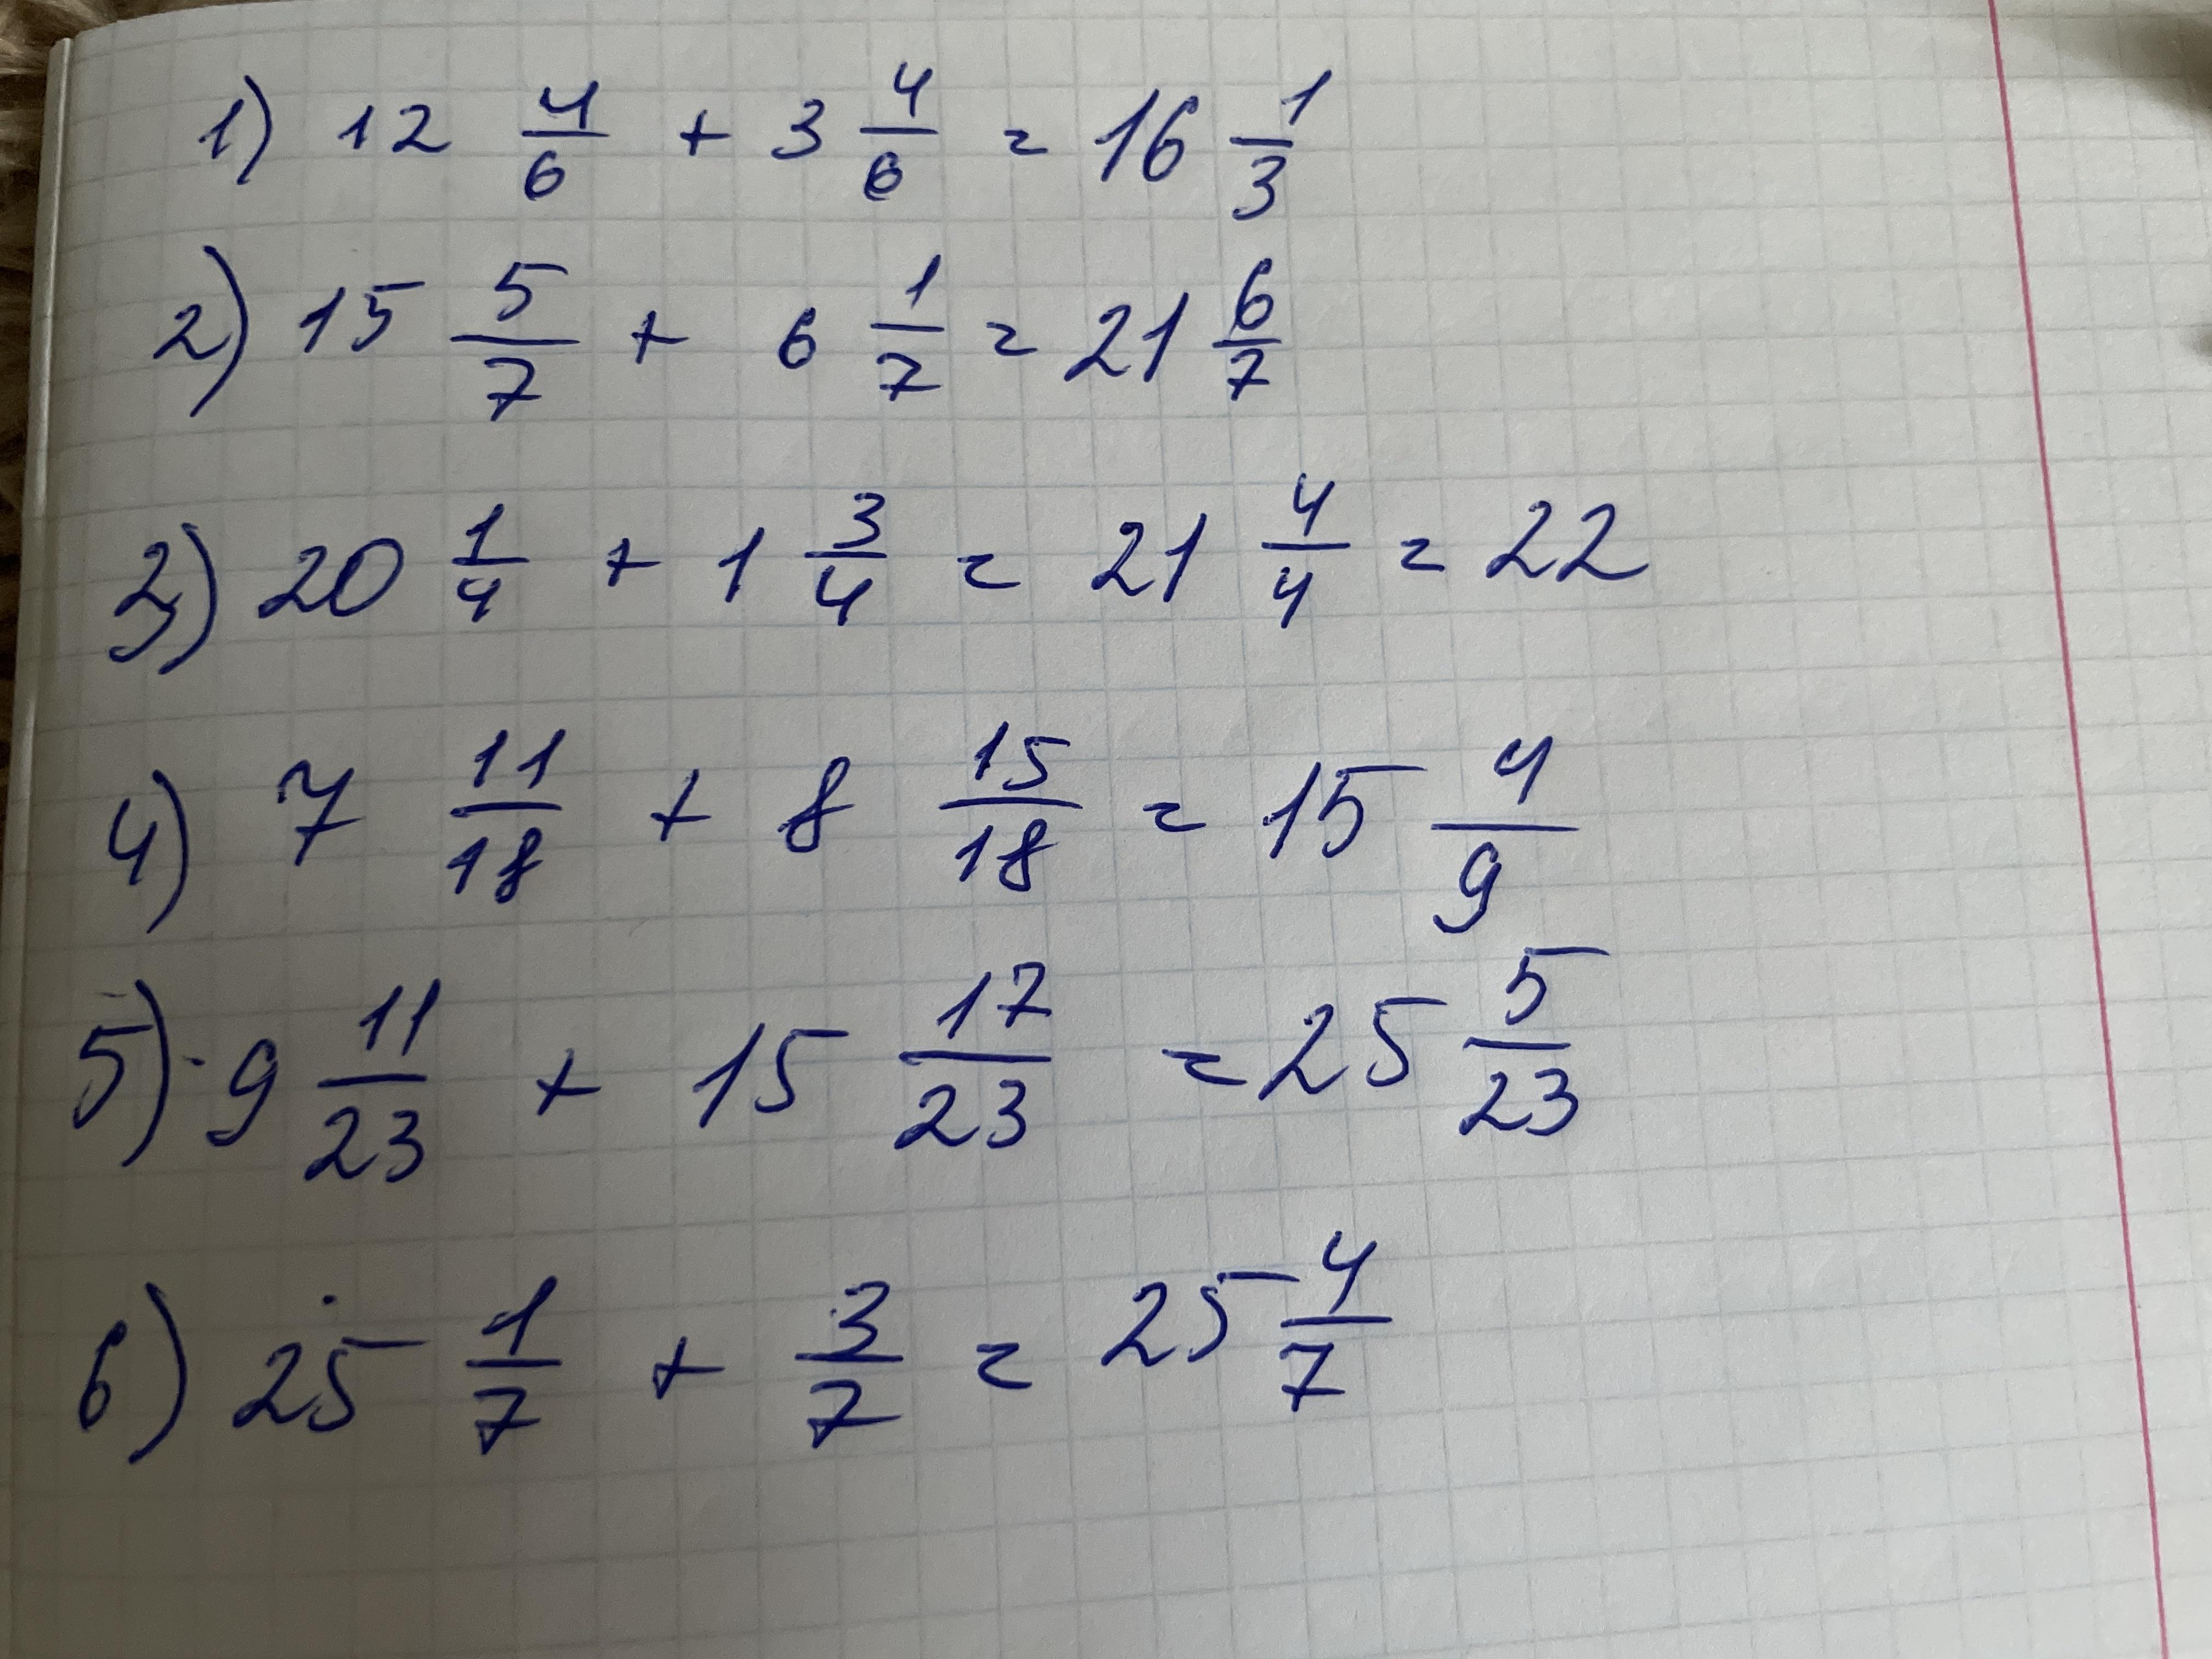 1) 12 4/6 + 3 4/6 = 16 1/3
2) 15 5/7 + 6 1/7 = 21 6/7
3) 20 1/4 + 1 3/4 = 21 4/4 = 22
4) 7 11/18 + 8 15/18 = 15 4/9
5) 9 11/23 + 15 17/23 = 25 5/23
6) 25 1/7 + 3/7 = 25 4/7